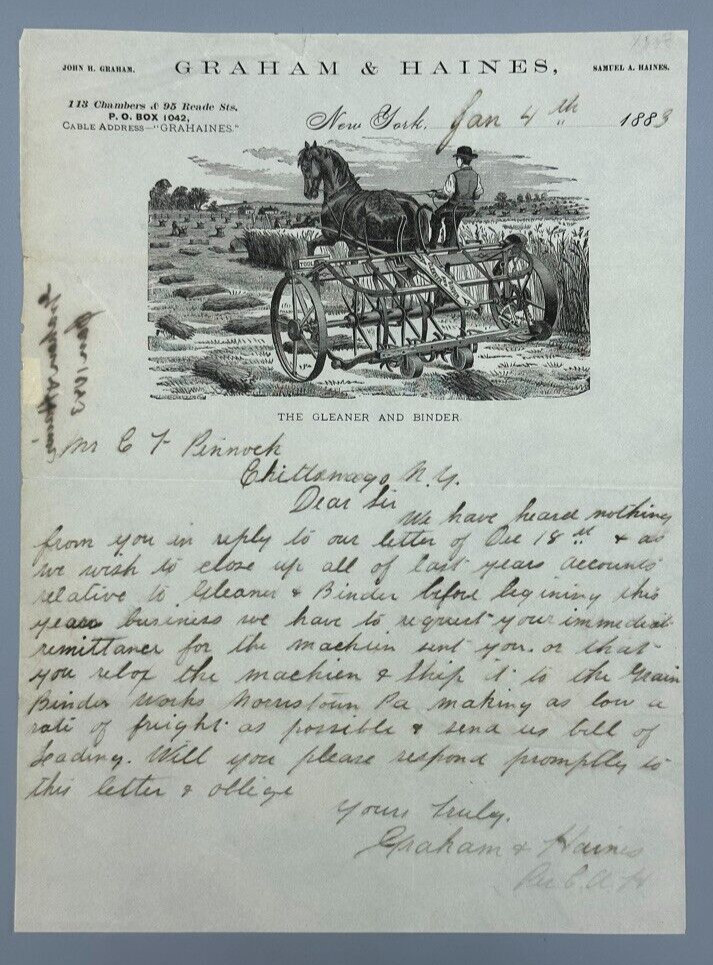 JOHN H. GRAHAM.
GRAHAM & HAINES,
SAMUEL A. HAINES.
113 Chambers & 95 Reade Sts.
P. O. BOX 1042,
CABLE ADDRESS—"GRAHAINES."
New York, Jan 4th 1883
TOOLS
THE GLEANER AND BINDER
Jan 1883
Graham & Haines
Mr C F Pinnock
Chittenango N.Y.
Dear Sir
We have heard nothing
from you in reply to our letter of Dec 18th & as
we wish to close up all of last years accounts
relative to Gleaner & Binder before begining this
years business we have to request your immediate
remittance for the machien sent you. or that
you rebox the machien & ship it to the Grain
Binder Works Norristown Pa making as low a
rate of freight as possible & send us bill of
Leading. Will you please respond promptly to
this letter & oblige
Yours Truly.
Graham & Haines
Per C. A. H